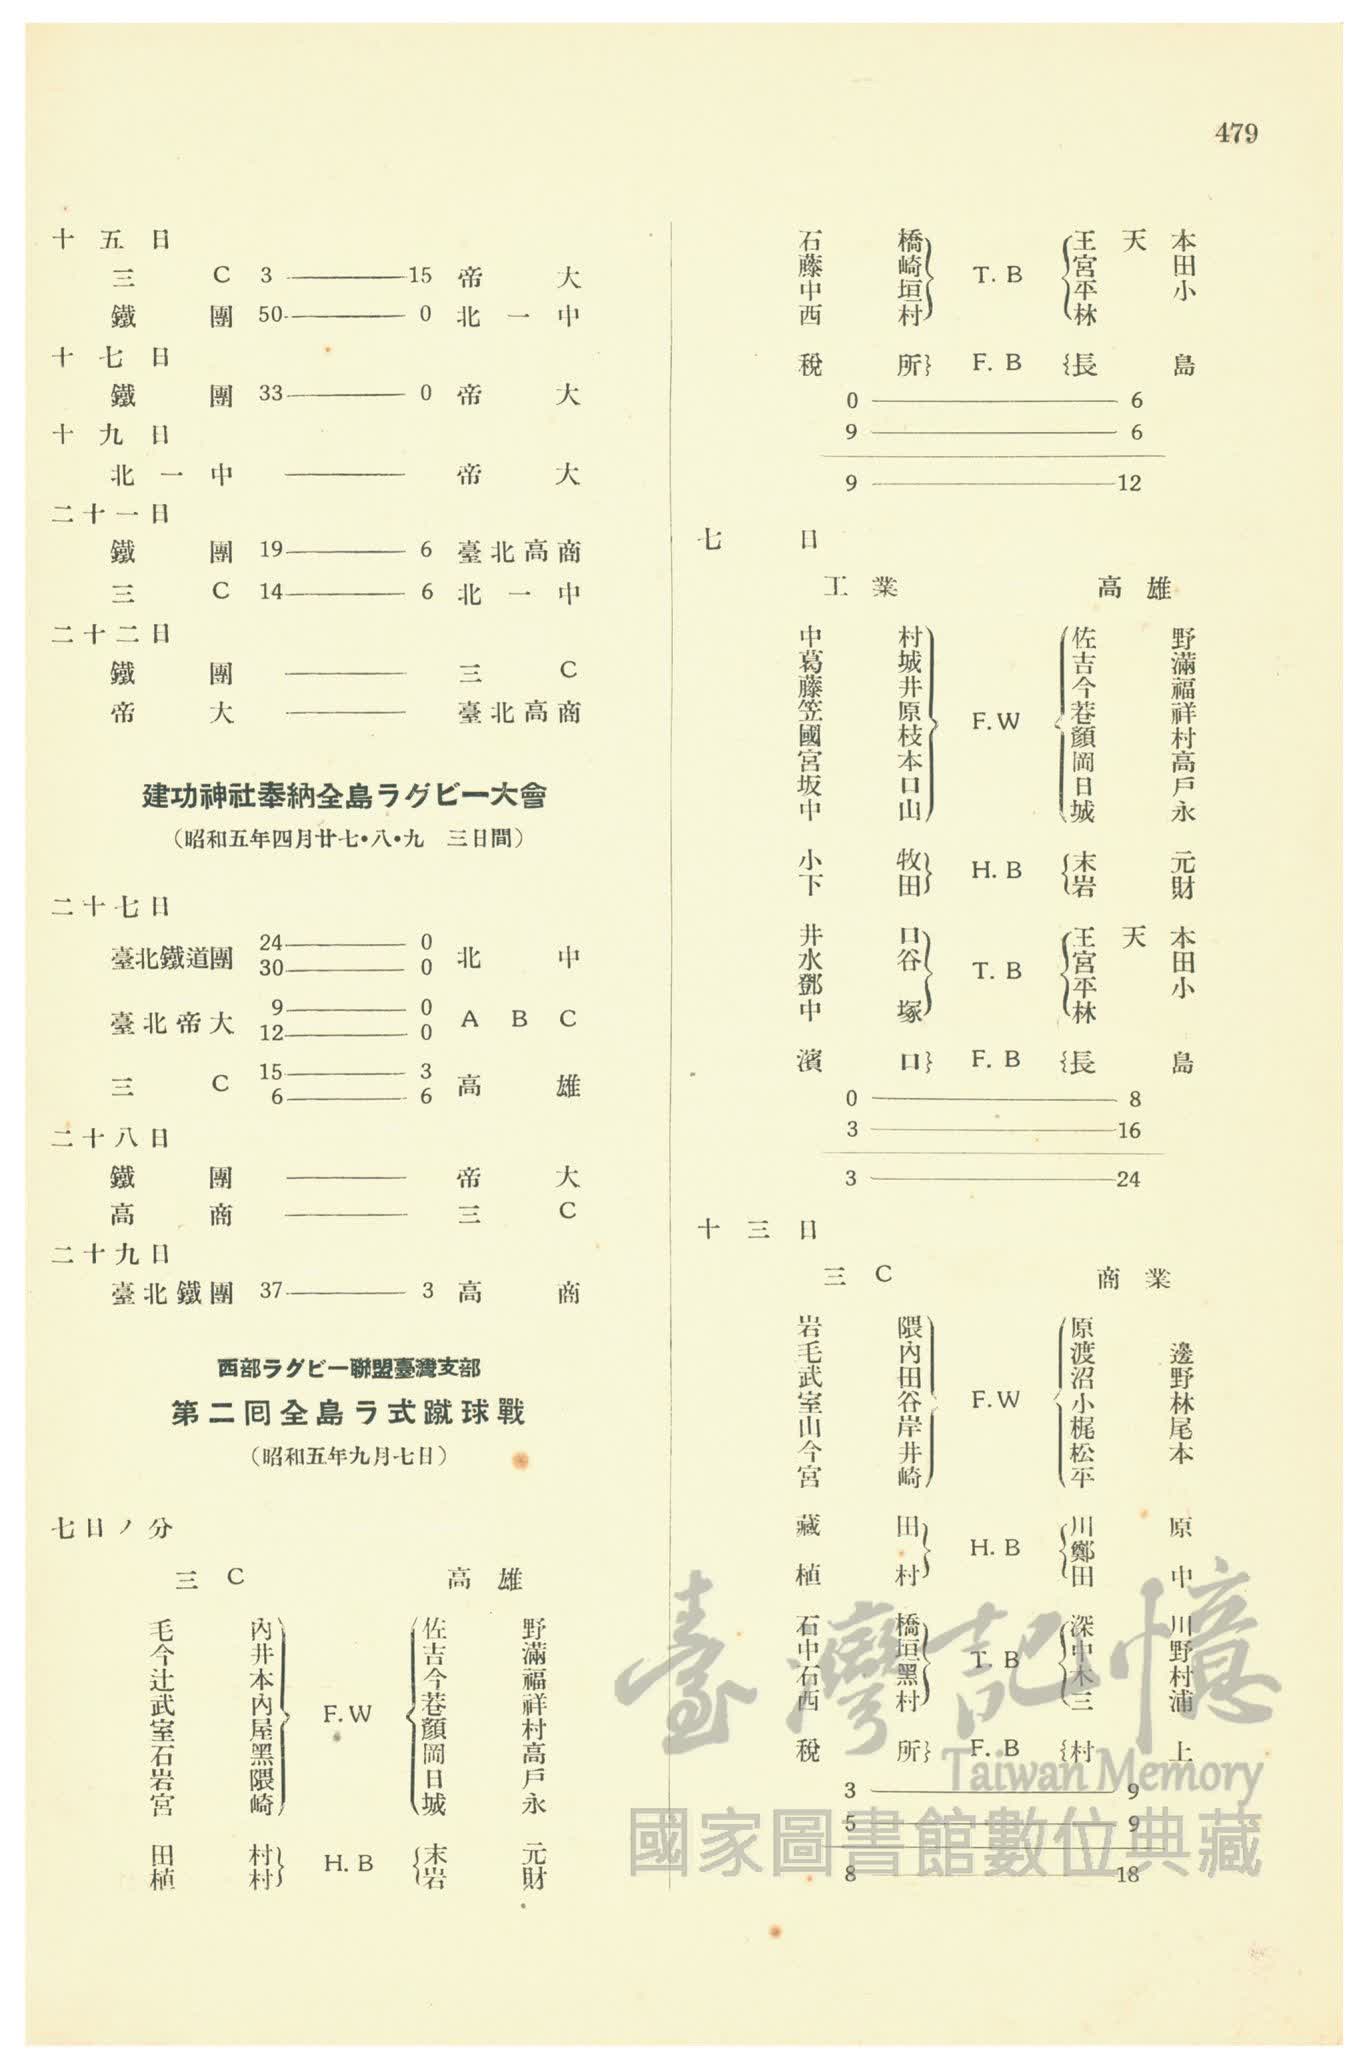 479
十五日
三C 3 ——— 15 帝大
鐵團 50 ——— 0 北一中
十七日
鐵團 33 ——— 0 帝大
十九日
北一中 ——— 帝大
二十一日
鐵團 19 ——— 6 臺北高商
三C 14 ——— 6 北一中
二十二日
鐵團 ——— 三C
帝大 ——— 臺北高商
建功神社奉納全島ラグビー大會
(昭和五年四月廿七・八・九 三日間)
二十七日
臺北鐵道團 24 ——— 0 北中
30 ——— 0
臺北帝大 9 ——— 0 ABC
12 ——— 0
三C 15 ——— 3 高雄
6 ——— 6
二十八日
鐵團 ——— 帝大
高商 ——— 三C
二十九日
臺北鐵團 37 ——— 3 高商
西部ラグビー聯盟臺灣支部
第二囘全島ラ式蹴球戰
(昭和五年九月七日)
七日ノ分
三C 高雄
毛內 佐野
今井 吉滿
辻本 今福
武內 F.W 巷祥
室屋 顏村
石黑 岡高
岩隈 日戶
宮崎 城永
田村 H.B 末元
植村 岩財
石橋 王天本
藤崎 T.B 宮田
中垣 平小
西村 林
稅所 F.B 長島
0 ——— 6
9 ——— 6
9 ——— 12
七日
工業 高雄
中村 佐野
葛城 吉滿
藤井 今福
笠原 F.W 巷祥
國枝 顏村
宮本 岡高
坂口 日戶
中山 城永
小牧 H.B 末元
下田 岩財
井口 王天本
水谷 T.B 宮田
鄧 平小
中塚 林
濱口 F.B 長島
0 ——— 8
3 ——— 16
3 ——— 24
十三日
三C 商業
岩隈 原
毛內 渡邊
武田 沼野
室谷 F.W 小林
山岸 梶尾
今井 松本
宮崎 平
藏田 川原
H.B 鄭
植村 田中
石橋 深川
中垣 T.B 中野
石黑 木村
西村 三浦
稅所 F.B 村上
3 ——— 9
5 ——— 9
8 ——— 18
臺灣記憶
Taiwan Memory
國家圖書館數位典藏